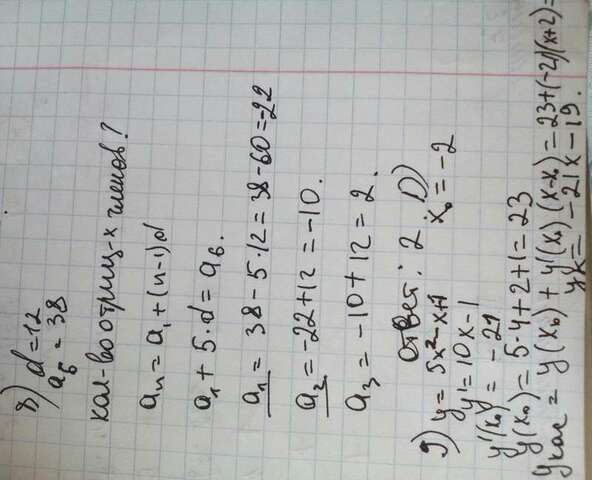 8) d = 12
a₆ = 38
кол-во отриц-х членов?
aₙ = a₁ + (n-1)d
a₁ + 5·d = a₆.
a₁ = 38 - 5·12 = 38 - 60 = -22
a₂ = -22 + 12 = -10.
a₃ = -10 + 12 = 2.
Ответ: 2 D)
9) y = 5x² - x + 1 x₀ = -2
y' = 10x - 1
y'(x₀) = -21
y(x₀) = 5·4 + 2 + 1 = 23
yкас = y(x₀) + y'(x₀)(x-x₀) = 23 + (-21)(x+2) =
yк = -21x - 19.